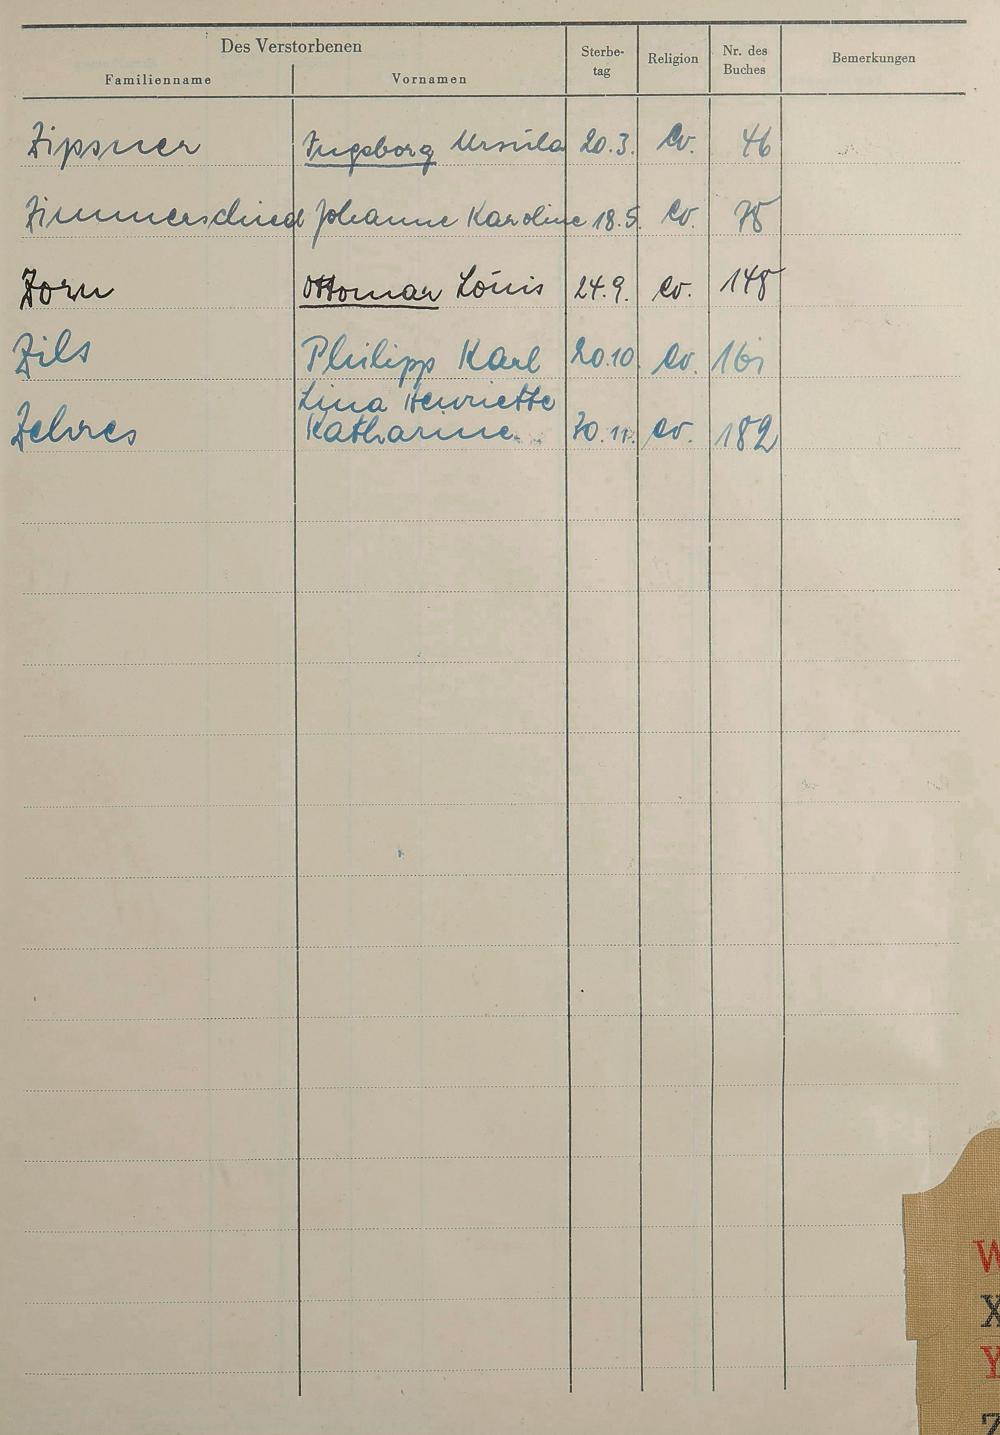 Des Verstorbenen
Familienname Vornamen Sterbe-tag Religion Nr. des Buches Bemerkungen
Zipsner Ingeborg Ursula 20.3. ev. 46
Zimmerschied Johanne Karoline 18.5. ev. 78
Zorn Ottomar Louis 24.9. ev. 148
Zils Philipp Karl 20.10. ev.
Lina Henriette
Zehres Katharine 30.11. ev. 182
W
X
Y
Z